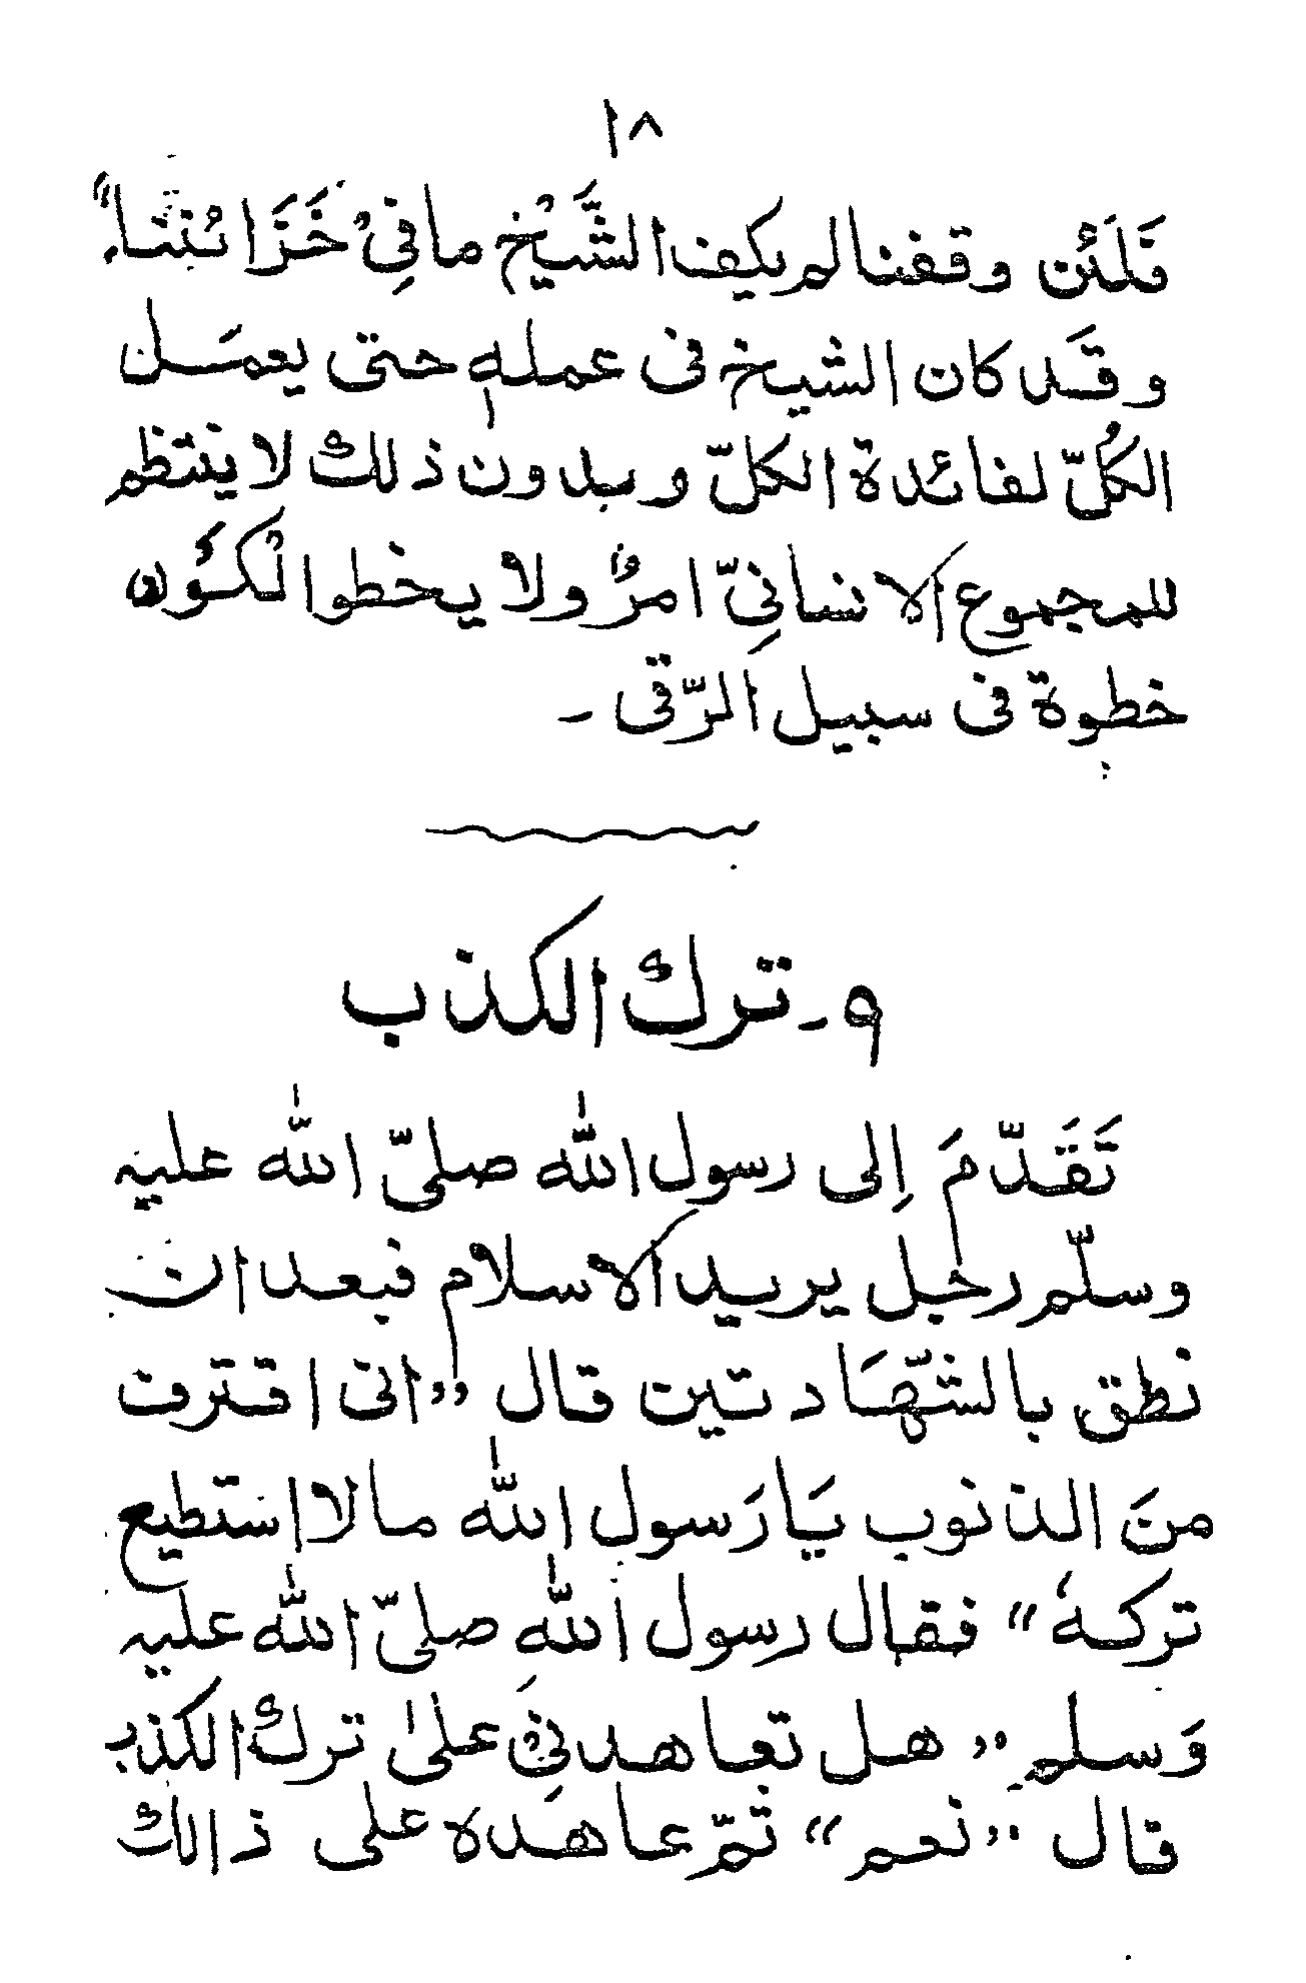 ١٨
فَلَئن وقفنا لم يكف الشَّيْخ ما فِيْ خَزَائننا"
وقَد كان الشيخ فى عمله حتى يعمَل
الكُلّ لفائدة الكلّ وبدون ذلك لا ينتظم
للمجموع الانسانِىّ امرٌ ولا يخطوا لْكَوْن
خطوة فى سبيل الرّقى -
٩- ترك الكذب
تَقَدّمَ إِلى رسول الله صلىّ الله عليه
وسلّم رجل يريد الاسلام فبعد ان
نطق بالشّهَادتين قال "انى اقترفت
منَ الذنوب يَا رَسول الله ما لا استطيع
تركهٗ" فقال رسول الله صلىّ الله عليه
وَسلم "هل تعاهدنِىْ علىٰ ترك الكذب
قال "نعم" ثمّ عاهَده على ذالك